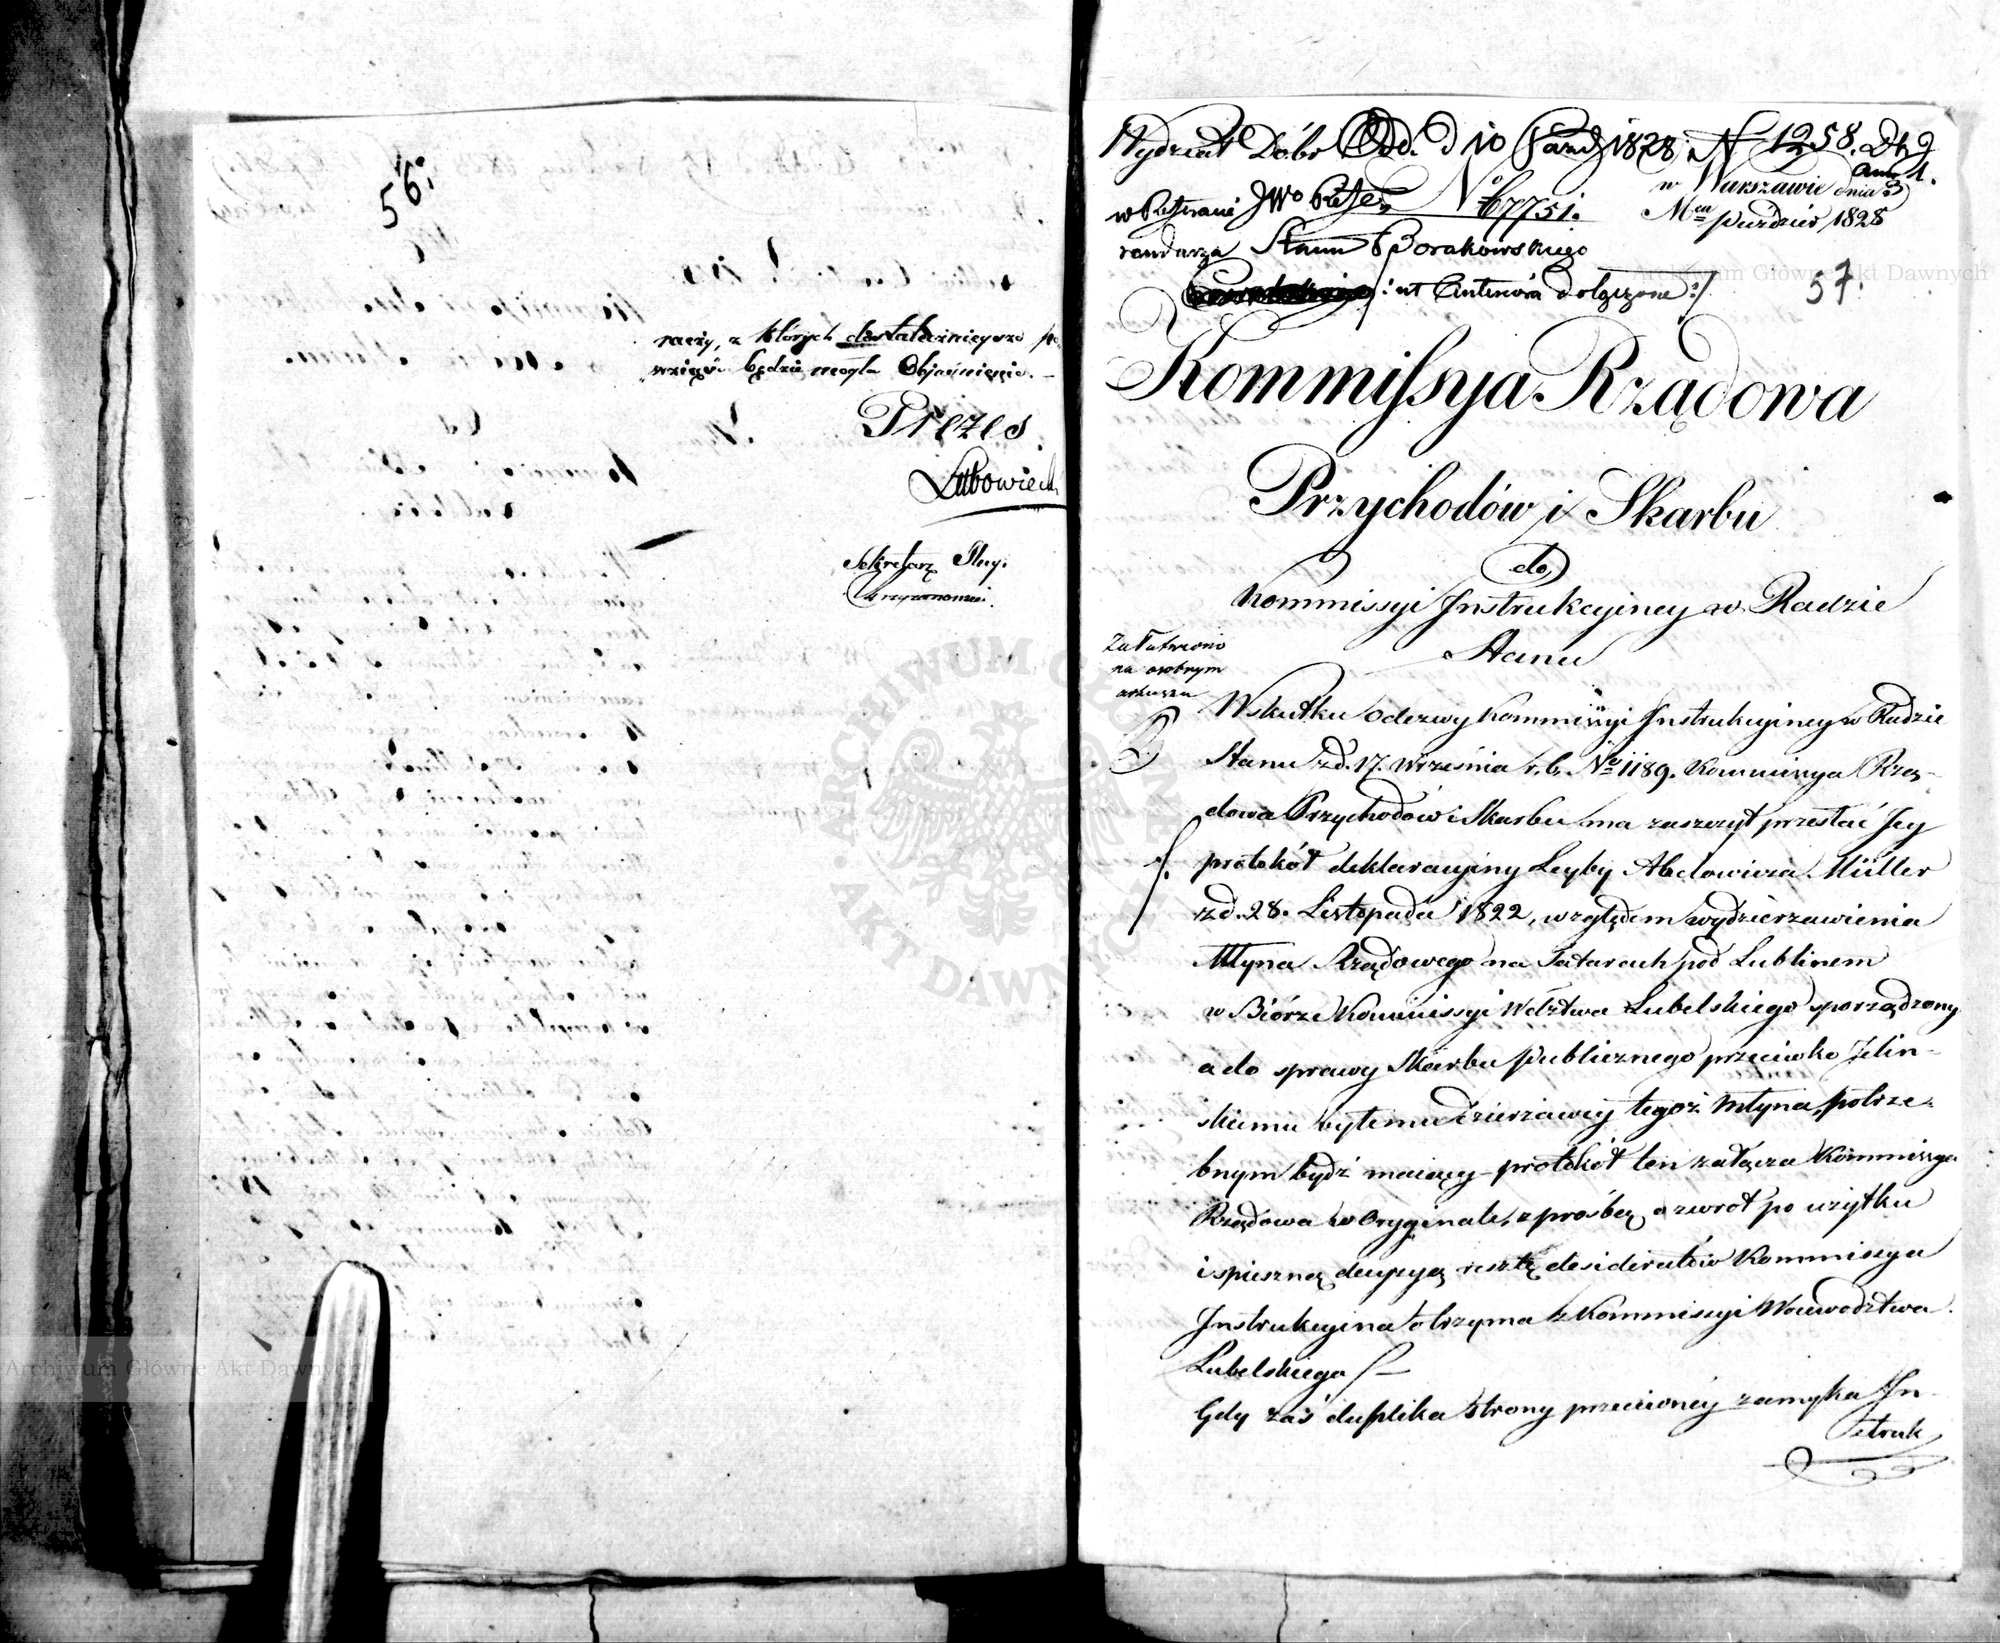 56.
raciy, z których dostateczniejsze po-
wziąść będzie mogła Objaśnienie. —
Prezes
Lubowiecki
Sekretarz Jlny.
Wydział Dóbr Odd. d 10 Paźdz 1828 N 1258. Dt 9
w Warszawie dnia 3
No 67751.
Mca Paździer 1828
Stanu Borakowskiego
/: ut Anteriora dołączone :/
57.
Kommissya Rządowa
Przychodów i Skarbu
do
Kommissyi Instrukcyiney w Radzie
Stanu
Załatwiono
na osobnym
arkuszu
Wskutku odezwy Kommissyi Instrukcyiney w Radzie
Stanu z d. 17. Września r. b. No 1189. Kommissya Rzą-
dowa Przychodów i Skarbu ma zaszczyt przesłać Jey
protokół deklaracyiny Leyby Abelowicza Müller
z d. 28. Listopada 1822, względem wydzierzawienia
Młyna Rządowego na Tatarach pod Lublinem
w Biórze Kommissyi Wdztwa Lubelskiego sporządzony
a do sprawy Skarbu Publicznego przeciwko Jelin-
skiemu byłemu Dzierzawcy tegoż Młyna, potrze-
bnym bydź maiący – protokół ten załącza Kommissya
Rządowa w Oryginale, z prośbą o zwrot po użytku
i spieszną decyzyą resztę desideratów Kommissya
Instrukcyina otrzyma z Kommissyi Woiewództwa
Lubelskiego
Gdy zaś duplika strony przeciwnéy zamyka In-
struk